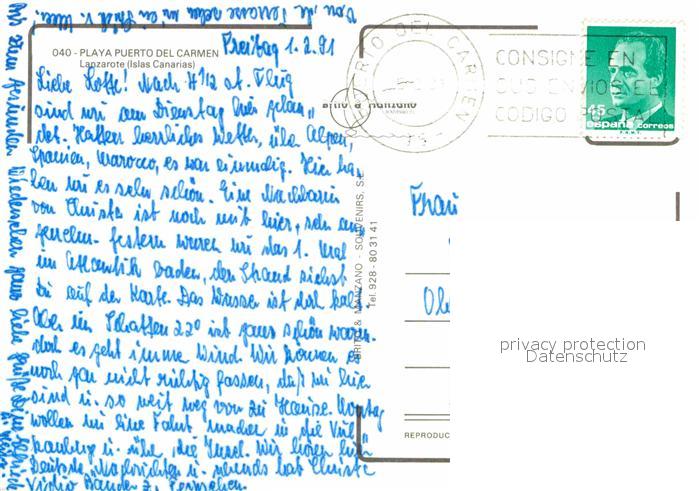 040 - PLAYA PUERTO DEL CARMEN
Lanzarote (Islas Canarias)
Freitag 1.2.91
Liebe Lotte! Nach 4 1/2 st. Flug
sind wir am Dienstag hier gelan„
det. Hatten herrliches Wetter, über Alpen,
Spanien, Marocco, es war einmalig. Hier ha-
ben wir es sehr schön. Eine Nachbarin
von Christa ist noch mit hier, sehr an
genehm. Gestern waren wir das 1. Mal
im Atlantik baden, den Strand siehst
Du auf der Karte. Das Wasser ist doch kalt.
Aber im Schatten 22° ist ganz schön warm.
doch es geht immer Wind. Wir können es
noch gar nicht richtig fassen, daß wir hier
sind u. so weit weg von zu Hause. Montag
wollen wir eine Fahrt machen in die Vul„
kanberge u. über die Insel. Wir hören hier
Deutsche Nachrichten u. abends hat Christa
Video Bänder z. Fernsehen.
Auf Wiedersehen ganz liebe Grüße
BRITO & MANZANO - SOUVENIRS, S.L.
Tel. 928 - 80 31 41
PUERTO DEL CARMEN
CONSIGNE EN
SUS ENVIOS EL
CODIGO POSTAL
45
españa correos
Frau
REPRODUC
privacy protection
Datenschutz